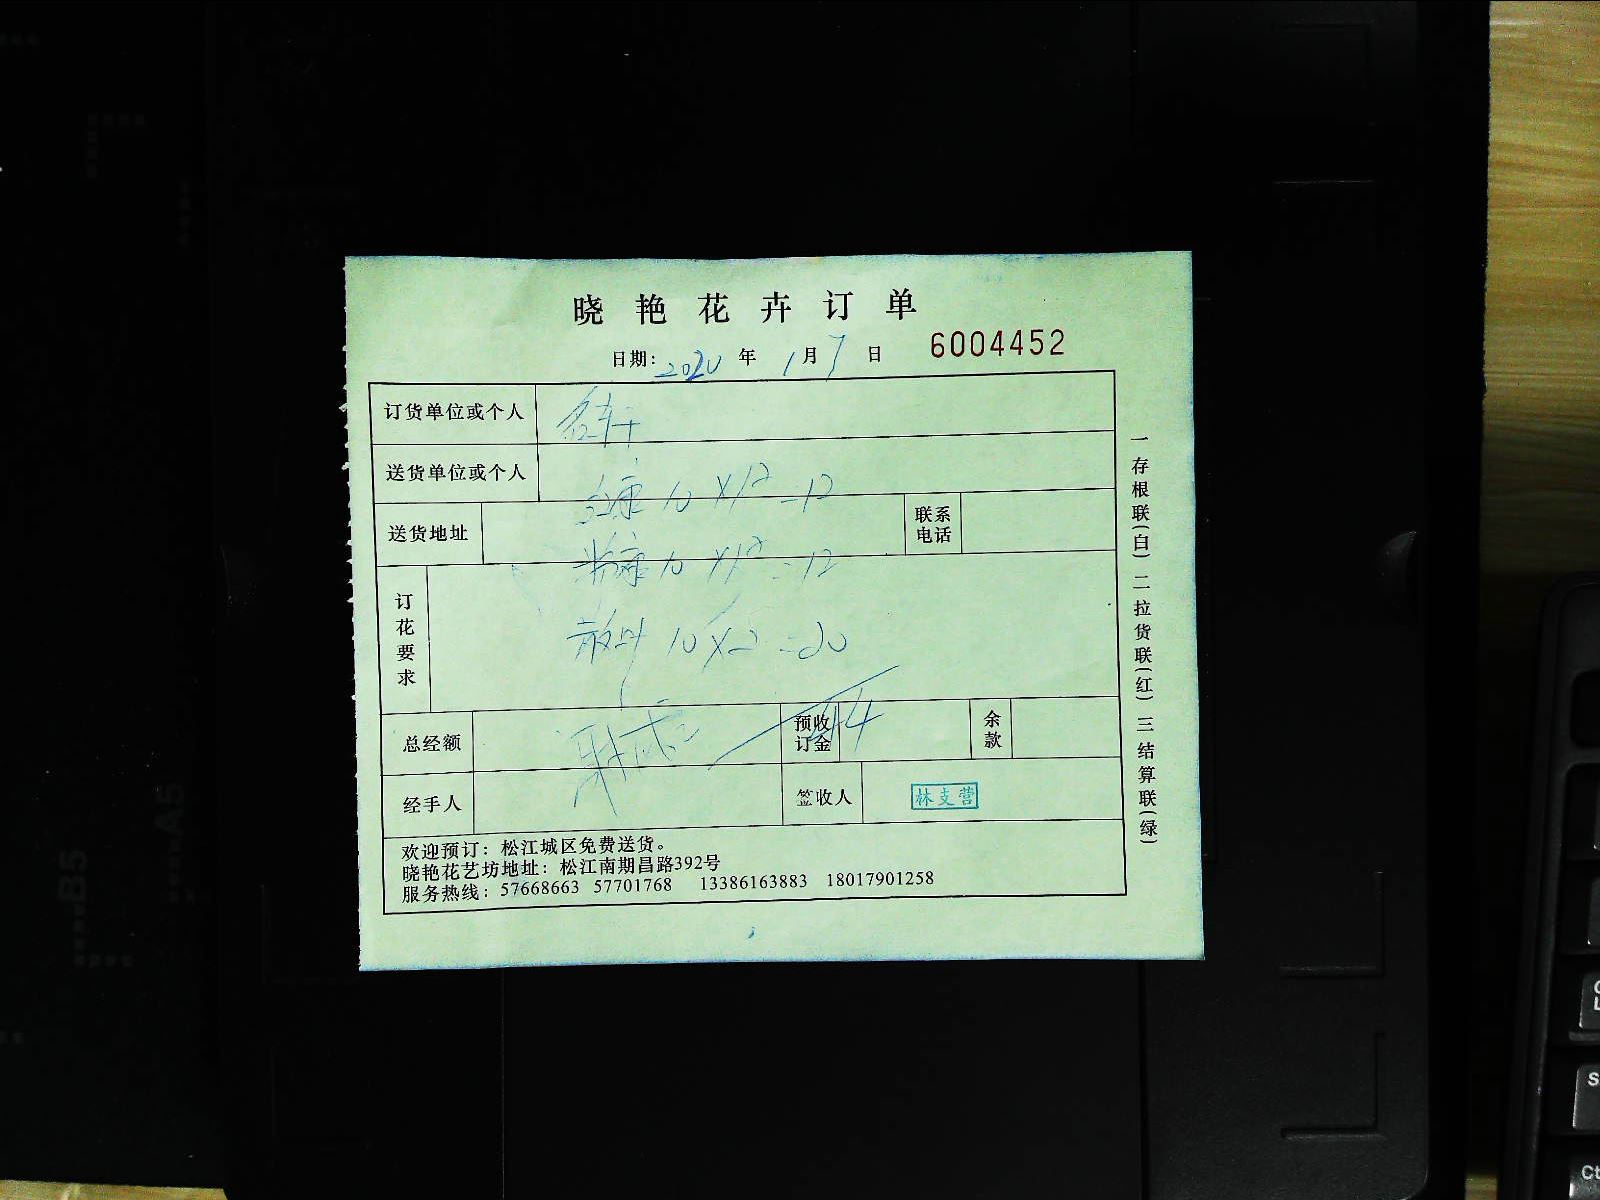 晓艳花卉订单
日期: 2020 年 1 月 7 日 6004452
订货单位或个人 名轩
送货单位或个人
红康 10 X 1.2 = 12
送货地址 联系电话
粉康 10 X 1.2 = 12
订花要求
10 X 2 = 20
总经额 预收订金 44 余款
经手人 签收人 林支营
欢迎预订: 松江城区免费送货。
晓艳花艺坊地址: 松江南期昌路392号
服务热线: 57668663 57701768 13386163883 18017901258
一存根联(白) 二拉货联(红) 三结算联(绿)
B5
A5